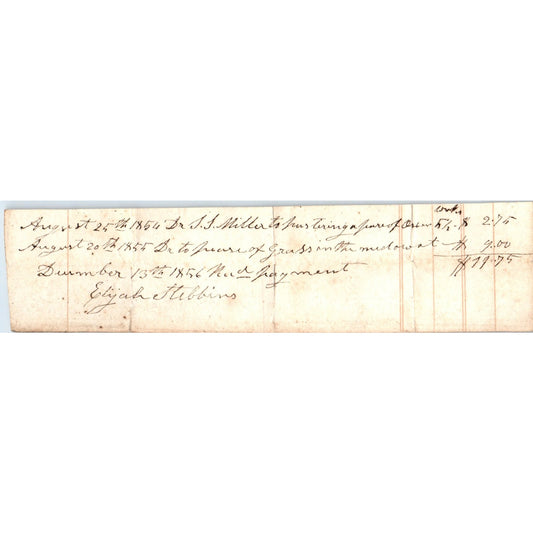 week
August 25th 1854 Dr. S. S. Miller to pasturing a pare of Oxen 5½ $ 2.75
August 20th 1855 Dr to peace of Grass in the medow at $ 9.00
$ 11.75
December 13th 1856 Recd payment
Elijah Stebbins